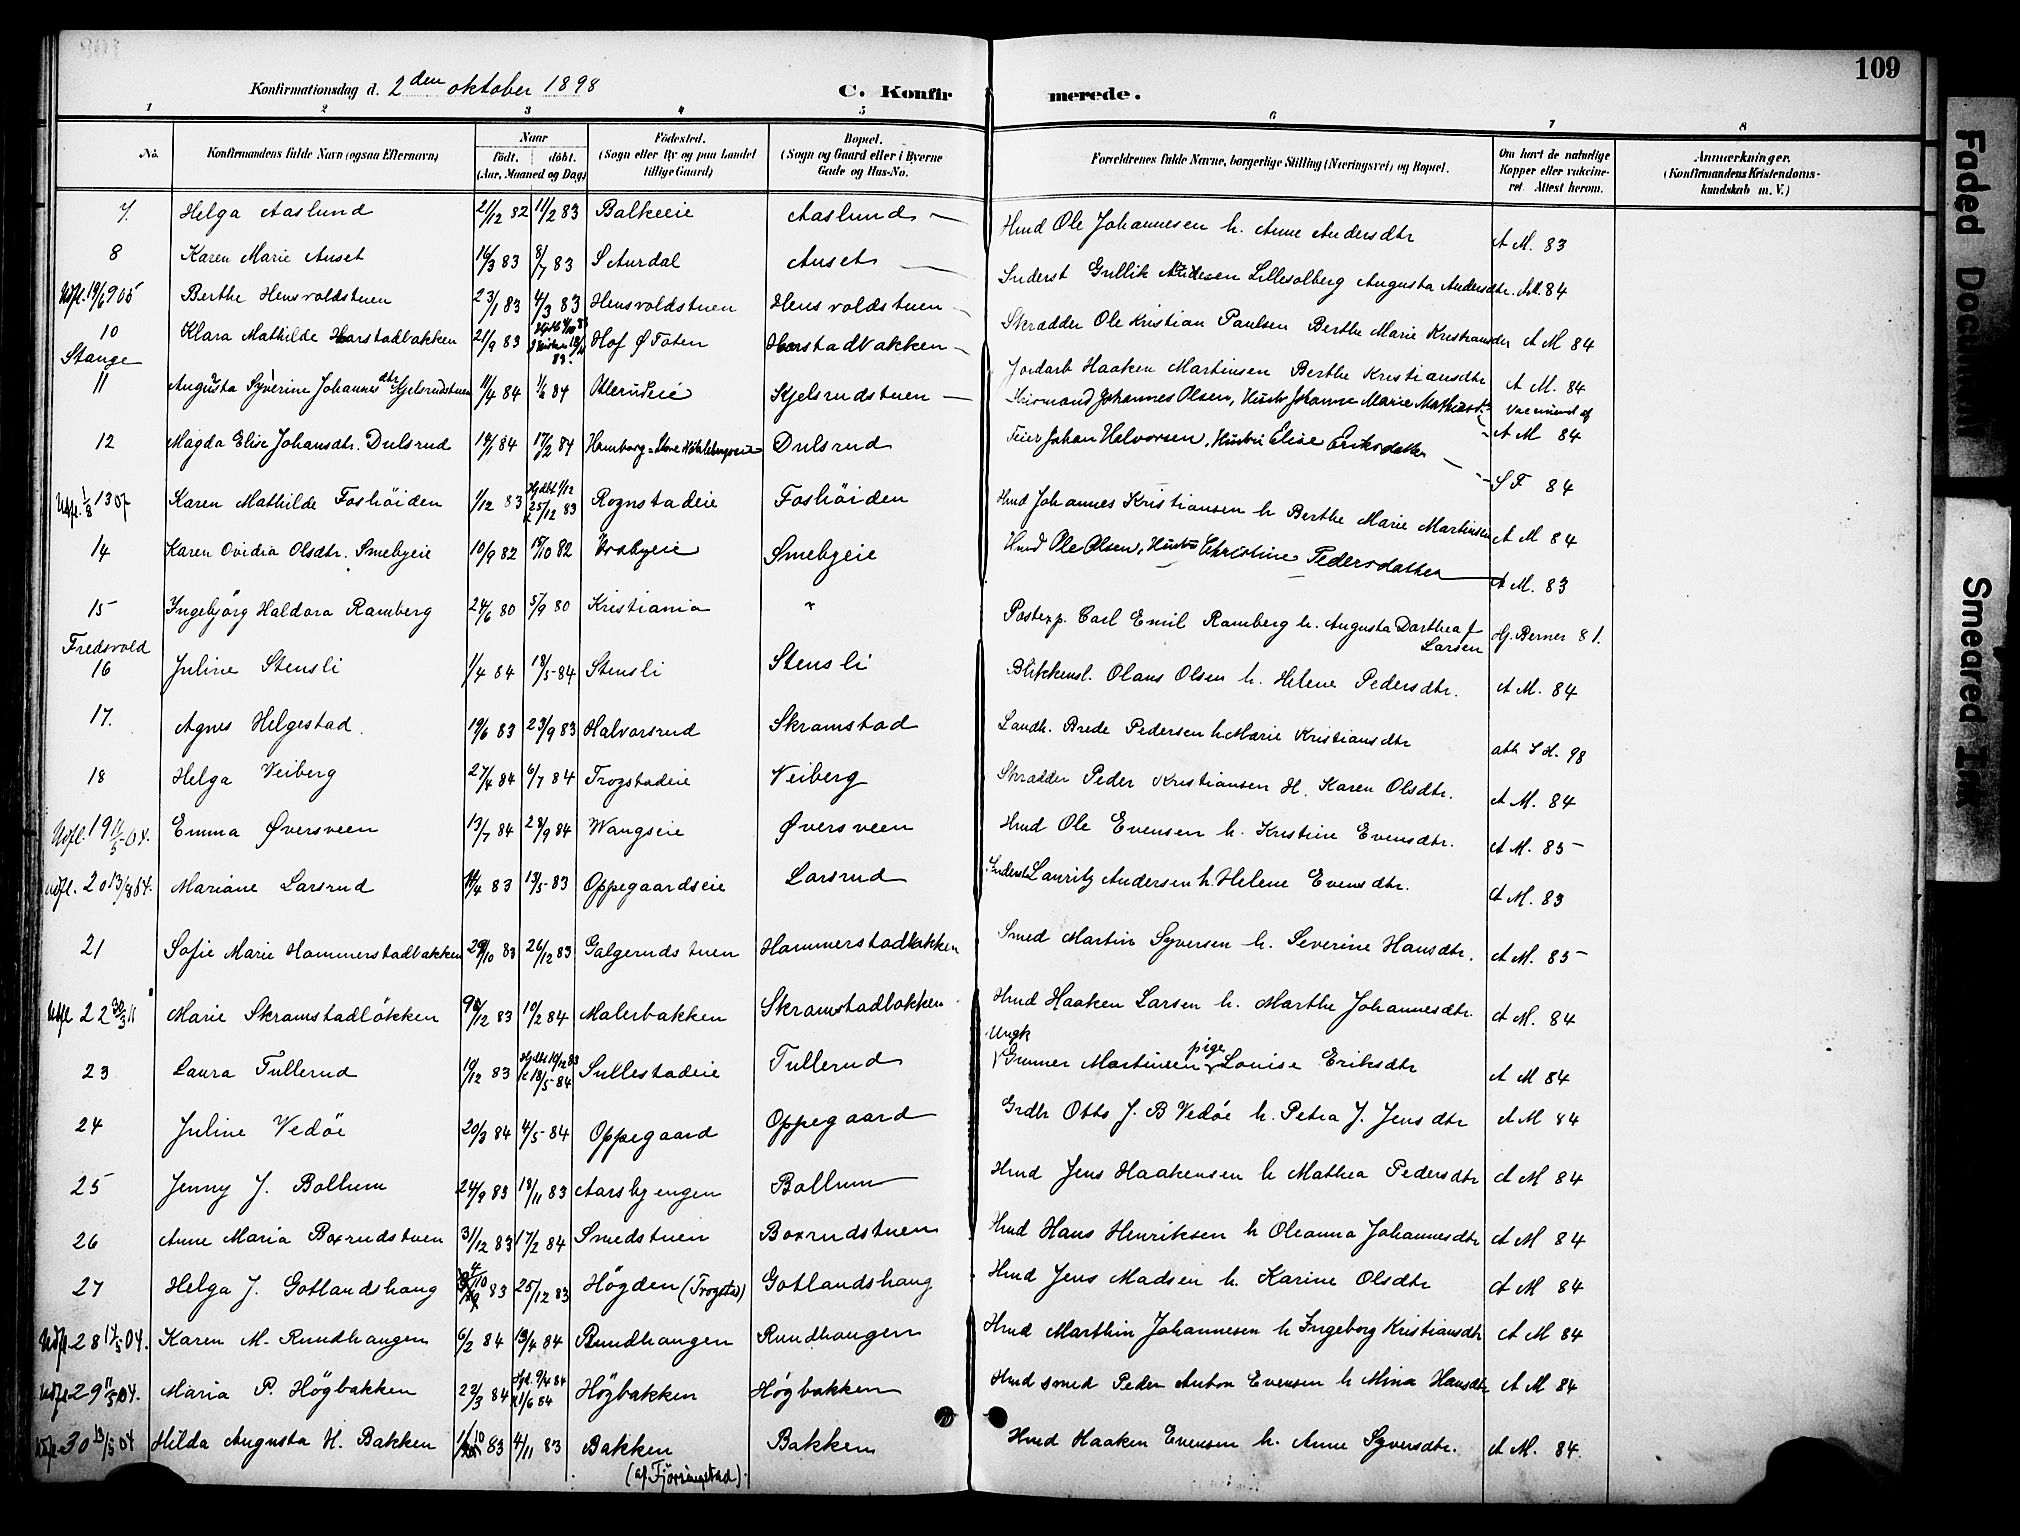 109
Konfirmationsdag d. 2den oktober 1898
C. Konfirmerede.
1 2 3 4 5 6 7 8
No. Konfirmandens fulde Navn (ogsaa Efternavn) Naar födt. döbt. (Aar, Maaned og Dag) Födested. (Sogn eller By og paa Landet tillige Gaard) Bopæl. (Sogn og Gaard eller i Byerne Gade og Hus-No. Forældrenes fulde Navne, borgerlige Stilling (Næringsvei) og Bopæl. Om havt de naturlige Kopper eller vaccineret. Attest herom. Anmærkninger. (Konfirmandens Kristendomskundskab m. V.)
7. Helga Aaslund 21/12 82 11/2 83 Balkeeie Aaslund Hmd Ole Johannesen h. Anne Andersdtr A M. 83
8 Karen Marie Auset 16/3 83 8/7 83 S Aurdal Auset Inderst Gullik Andersen Lillesolberg Augusta Andersdtr. A M. 84
Udfl. 19/6 905 Berthe Hensvoldstuen 23/1 83 4/3 83 Hensvoldstuen Hensvoldstuen Skrædder Ole Kristian Paulsen Berthe Marie Kristiansdr A M 84
10 Stange Klara Mathilde Harstadbakken 21/9 83 Hof Ø Toten Harstadbakken Jordarb Haaken Martinsen Berthe Kristiansdtr A M. 84
11 Augusta Syverine Johannesdtr Kjelsrudstuen 11/4 84 1/6 84 Alerudeie Kjelsrudstuen Husmand Johannes Olsen, Hustr Johanne Marie Mathiasd. Vaccineret af A M 84
12 Magda Elise Johansdtr. Dulsrud 19/1 84 17/2 84 Dulsrud Feier Johan Halvorsen, Hustru Elise Eriksdatter S F 84
Udfl. 1/8 13 07 Karen Mathilde Foshöiden 1/12 83 Hjdbt 9/12 k 25/12 83 Rognstadeie Foshöiden Hmd Johannes Kristiansen h Berthe Marie Martinsen A M 84
14 Karen Ovidia Olsdtr. Smebyeie 10/9 82 15/10 82 Smebyeie Hmd Ole Olsen, Hustru Christine Pedersdatter A M. 83
15 Fredsvold Ingebjörg Haldora Ramberg 24/6 80 5/9 80 Kristiania " Postexp. Carl Emil Ramberg h. Augusta Dorthea f Larsen Hj. Berner 81.
16 Juline Stensli 1/4 84 18/5 84 Stensli Stensli Blikkensl. Olaus Olsen h. Helene Pedersdtr. A M. 84
17. Agnes Helgestad. 19/6 83 23/9 83 Halvorsrud Skramstad Landh. Brede Pedersen h Marie Kristiansdtr att S H. 98
18 Helga Veiberg 27/4 84 6/7 84 Trogstadeie Veiberg Skrædder Peder Kristiansen H. Karen Olsdtr. A M. 84
Udfl. 19 11/5 04. Emma Øversveen 13/7 84 28/9 84 Wangseie Øversveen Hmd Ole Evensen h. Kristine Evensdtr. A M. 85
Udfl. 20 13/9 04. Mariane Larsrud 14/4 83 13/5 83 Oppegaardseie Larsrud Inderst Lauritz Andersen h. Helene Evensdtr. A M. 83
21 Sofie Marie Hammerstadbakken 29/10 83 26/12 83 Galgerudstuen Hammerstadbakken Smed Martin Syversen h. Severine Hansdtr. A M. 85
Udfl 22 30/3 11 Marie Skramstadlökken 9/12 83 10/2 84 Malerbakken Skramstadbakken Hmd Haaken Larsen h. Marthe Johannesdtr. A M. 84
23 Laura Tullerud 19/12 83 Hjdbt 19/12 83 k 18/5 84 Sullestadeie Tullerud Ungk Gunner Martinsen pige Louise Eriksdtr A M 84
24 Juline Vedöe 20/3 84 4/5 84 Oppegaard Oppegaard Grdbr Otto J. B Vedöe h. Petra J. Jensdtr A M 84
25 Jenny J. Bollum 24/9 83 18/11 83 Aarsbyengen Bollum Hmd Jens Haakensen h Mathea Pedersdtr A M 84
26 Anne Maria Boxrudstuen 31/12 83 17/2 84 Smedstuen Boxrudstuen Hmd Hans Henriksen h Oleanna Johannesdtr A M 84
27 Helga J. Gotlandshaug 4/10 83 25/12 83 Högden (Trogstad) Gotlandshaug Hmd Jens Madsen h. Karine Olsdtr A M 84
Udfl. 28 14/5 04. Karen M. Rundhaugen 6/2 84 13/4 84 Rundhaugen Rundhaugen Hmd Marthin Johannesen h Ingeborg Kristiansdtr A M 84
Udfl 29 11/5 04. Maria P. Högbakken 22/3 84 Hjd. 9/4 84 k 1/6 84 Högbakken Högbakken Hmd smed Peder Anton Evensen h Mina Hansdtr A M 84
Udfl. 30 13/5 04 Hilda Augusta H. Bakken 1/10 83 4/11 83 Bakken (af Fjörringstad). Bakken Hmd Haaken Evensen h. Anne Syversdtr. A M. 84.
Faded Document
Smeared Ink